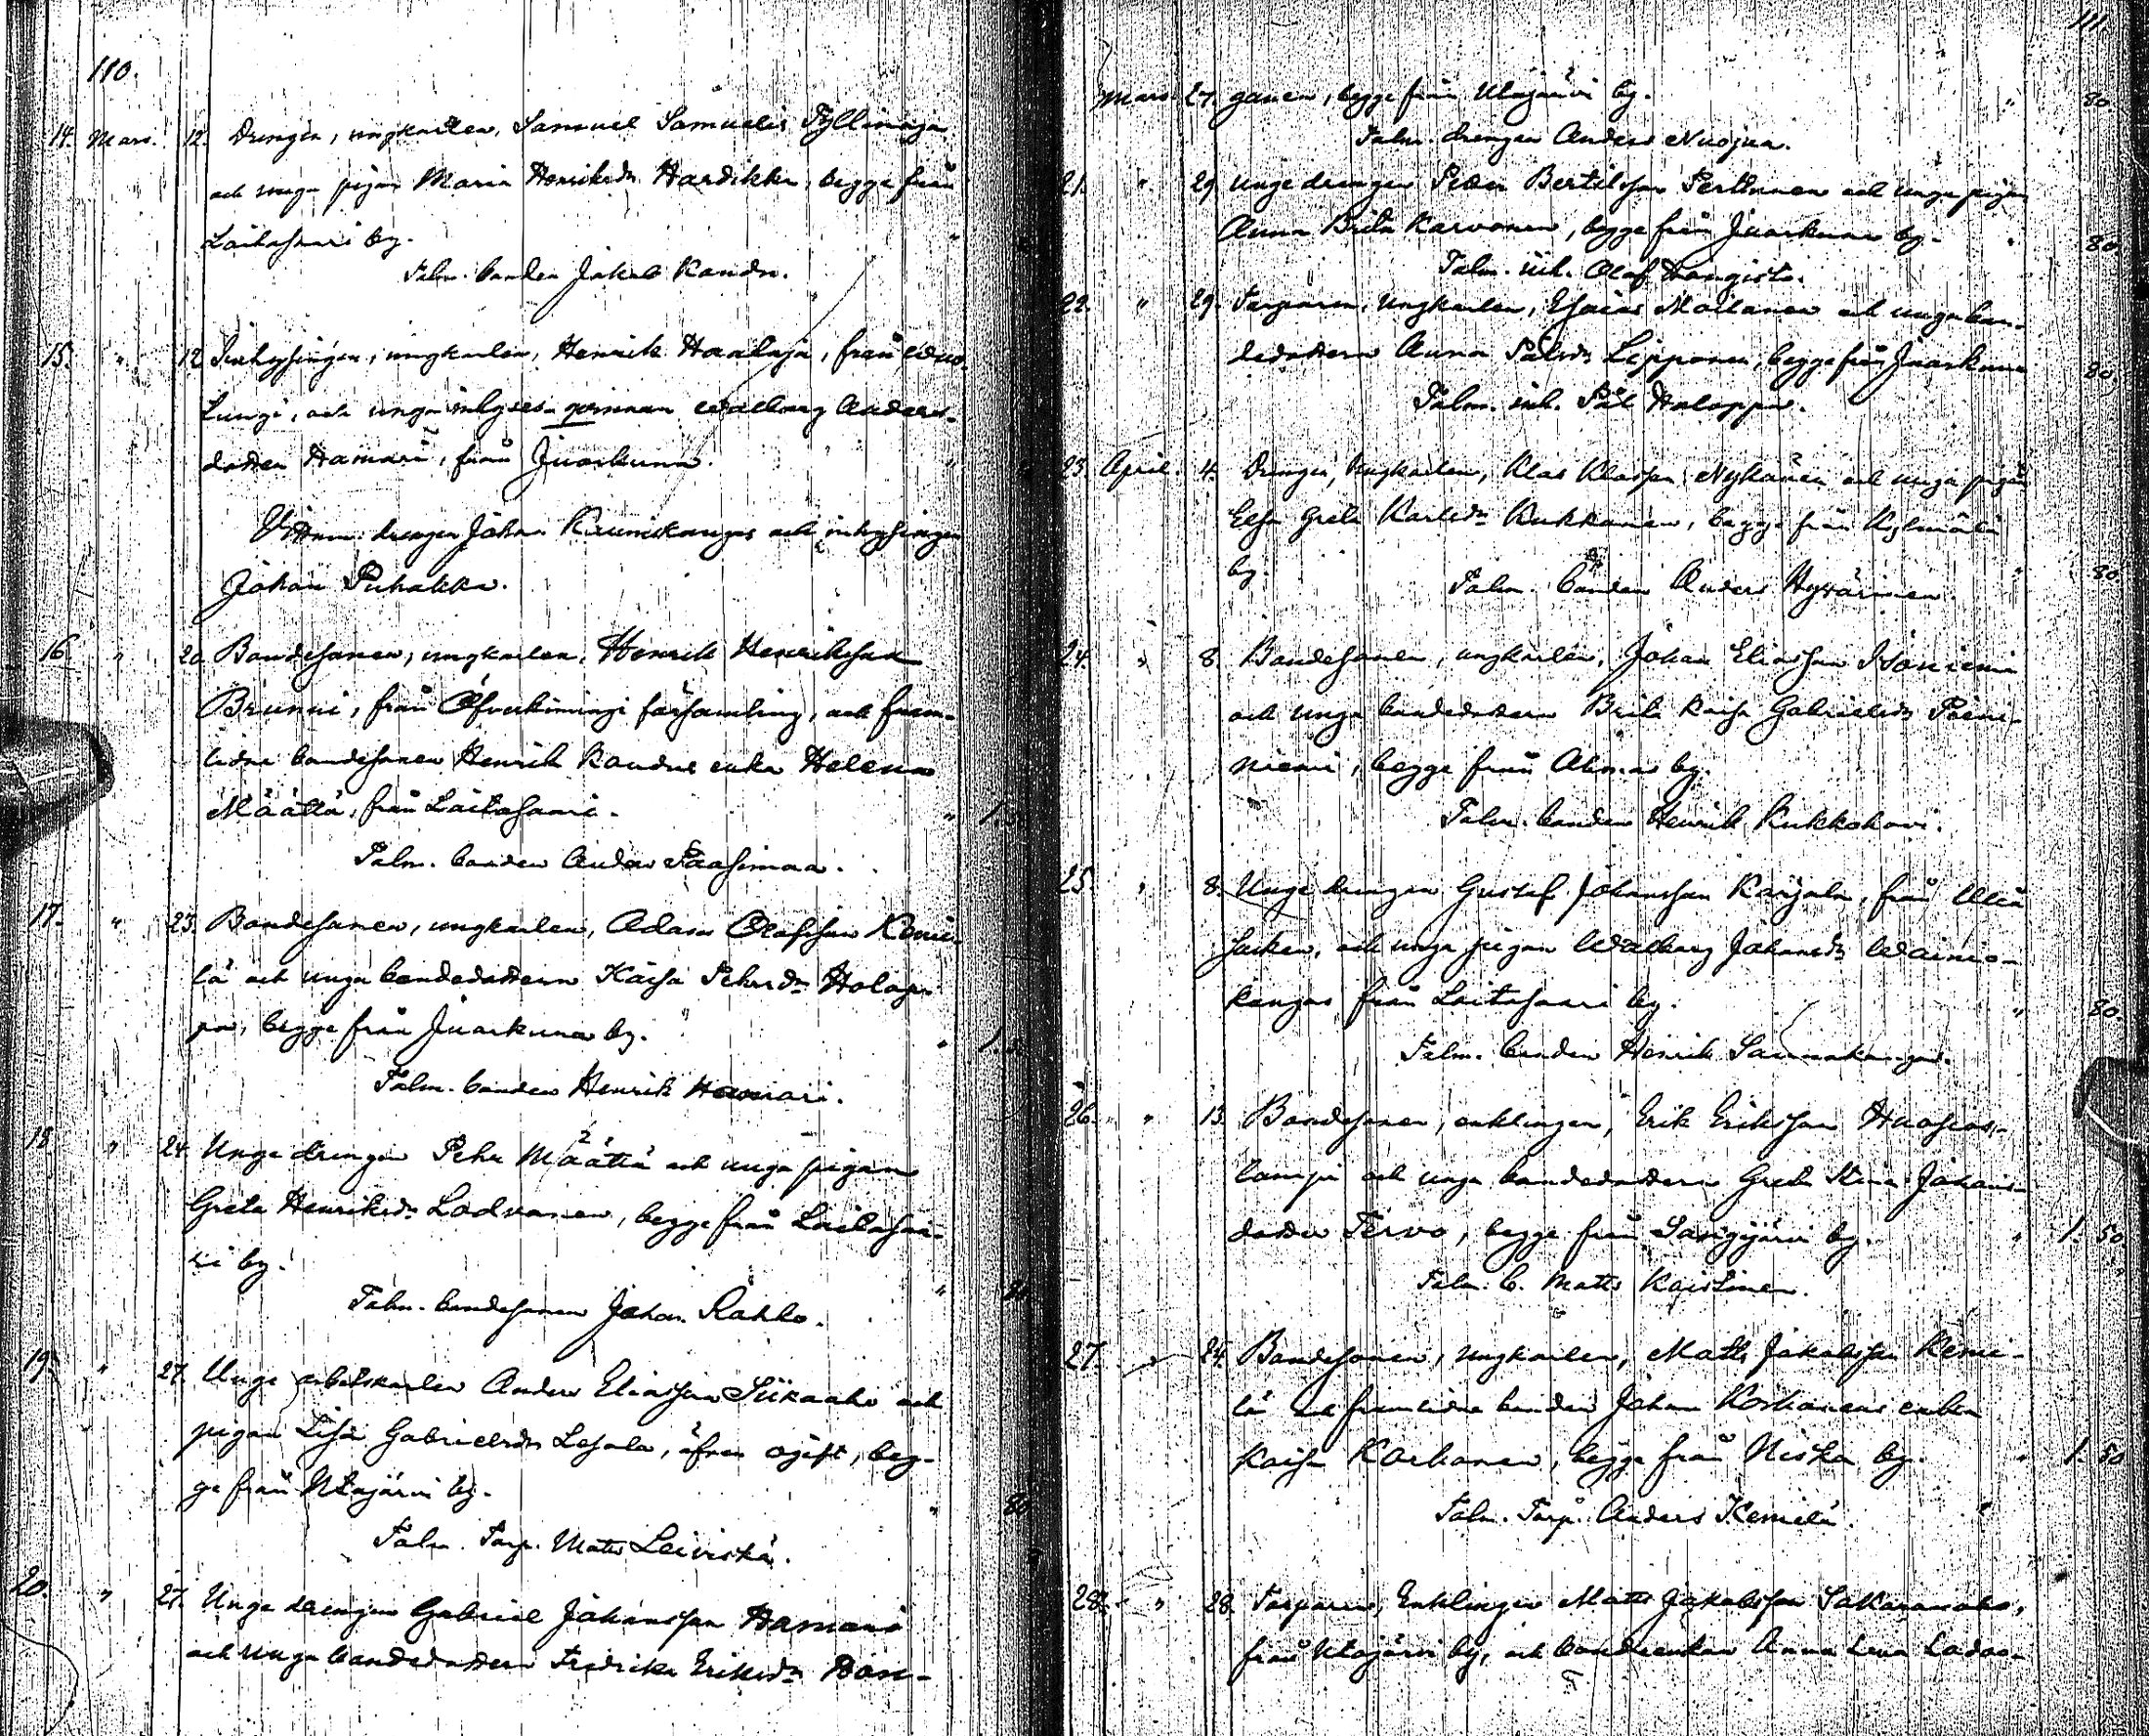 110.
14. Mars. 12. Drengen, ungkarlen, Samuel Samuelis Tyllinoja
och unga pigan Maria Henriksdr Hardikka, begge från
Laitasaari by. "
Talm. bonden Jakob Kandn.
15. " 12. Inhysingen, ungkarlen, Henrik Haaloja, från
Lungi, och unga inhyses qvinnan Walborg Anders-
dotter Hamari, från Juorkuna. "
Vittnen: drengen Johan Kauniskangas och inhysingen
Johan Puhakka.
16. " 20. Bondesonen, ungkarlen, Henrik Henriksson
Brunni, från Öfverkiminge församling, och fram-
lidne bondesonen Henrik Kandns enka Helena
Määttä, från Laitasaari. " 1.
Talm. bonden Anders Paasimaa.
17. " 23. Bondesonen, ungkarlen, Adam Olofsson Kemi-
lä och unga bondedottern Kaisa Pehrsdr Holap-
pa, begge från Juorkuna by. " 1.
Talm. bonden Henrik Hamari.
18. " 24. Unge drengen Pehr Määttä och unga pigan
Greta Henriksdr Lodvanen, begge från Laitasaa-
ri by. " 80
Talm. bondesonen Johan Rahko.
19. " 27. Unge arbetskarlen Anders Eliasson Siikaaho och
pigan Lisa Gabrielsdr Lesala, äfven ogift, beg-
ge från Utajärvi by. " 80
Talm. Torp. Matts Leiviskä.
20. " 27. Unge drengen Gabriel Johansson Hamari
och unga bondedottern Fredrika Eriksdr Bon-
111.
Mars. 27. ganen, begge från Utajärvi by. " 80.
Talm. drengen Anders Nuojua.
21. " 29. Unge drengen Petter Bertilsson Perttunen och unga pigan
Anna Brita Karvonen, begge från Juorkuna by. " 80.
Talm. inh. Olof Hangisto.
22. " 29. Torparen, Ungkarlen, Esaias Moilanen och unga bon-
dedottern Anna Pålsdr Lipponen, begge från Juorkuna 80.
Talm. inh. Pål Holappa.
23. April. 4. Drengen, Ungkarlen, Klas Klasson Nykänen och unga pigan
Elsa Greta Karlsdr Kukkonen, begge från Kylmälä
by. " 80.
Talm. bonden Anders Hyvärinen
24. " 8. Bondesonen, ungkarlen, Johan Eliasson Isoniemi
och unga bondedottern Brita Kaisa Gabrielsdr Pieni-
niemi, begge från Ahmas by.
Talm. bonden Henrik Kukkohovi.
25. " 8. Unge drengen Gustaf Johansson Karjala, från Uleå
socken, och unga pigan Walborg Johansdr Wainio-
kangas från Laitasaari by. " 80.
Talm. bonden Henrik Sannakangas.
26. " 13. Bondesonen, enklingen, Erik Eriksson Huosias-
lampi och unga bondedottern Greta Stina Johans-
dotter Tervo, begge från Sangijärvi by. " 1. 50
Talm. b. Matts Karstinen.
27. " 24. Bondesonen, Ungkarlen, Matts Jakobsson Kemi-
lä och framlidne bonden Johan Korhonens enka
Kaisa Korhonen, begge från Niska by. " 1. 50
Talm. Torp. Anders Kemilä.
28. " 28. Torparen, Enklingen Matts Jakobsson Sakaranaho,
från Utajärvi by, och bondeenkan Anna Lena Lodva-